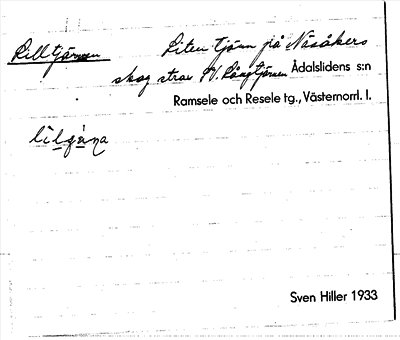 Lilltjärnen Liten tjärn på Näsåkers
skog strax V. Långtjärnen Ådalslidens s:n
Ramsele och Resele tg., Västernorrl. l.
Sven Hiller 1933